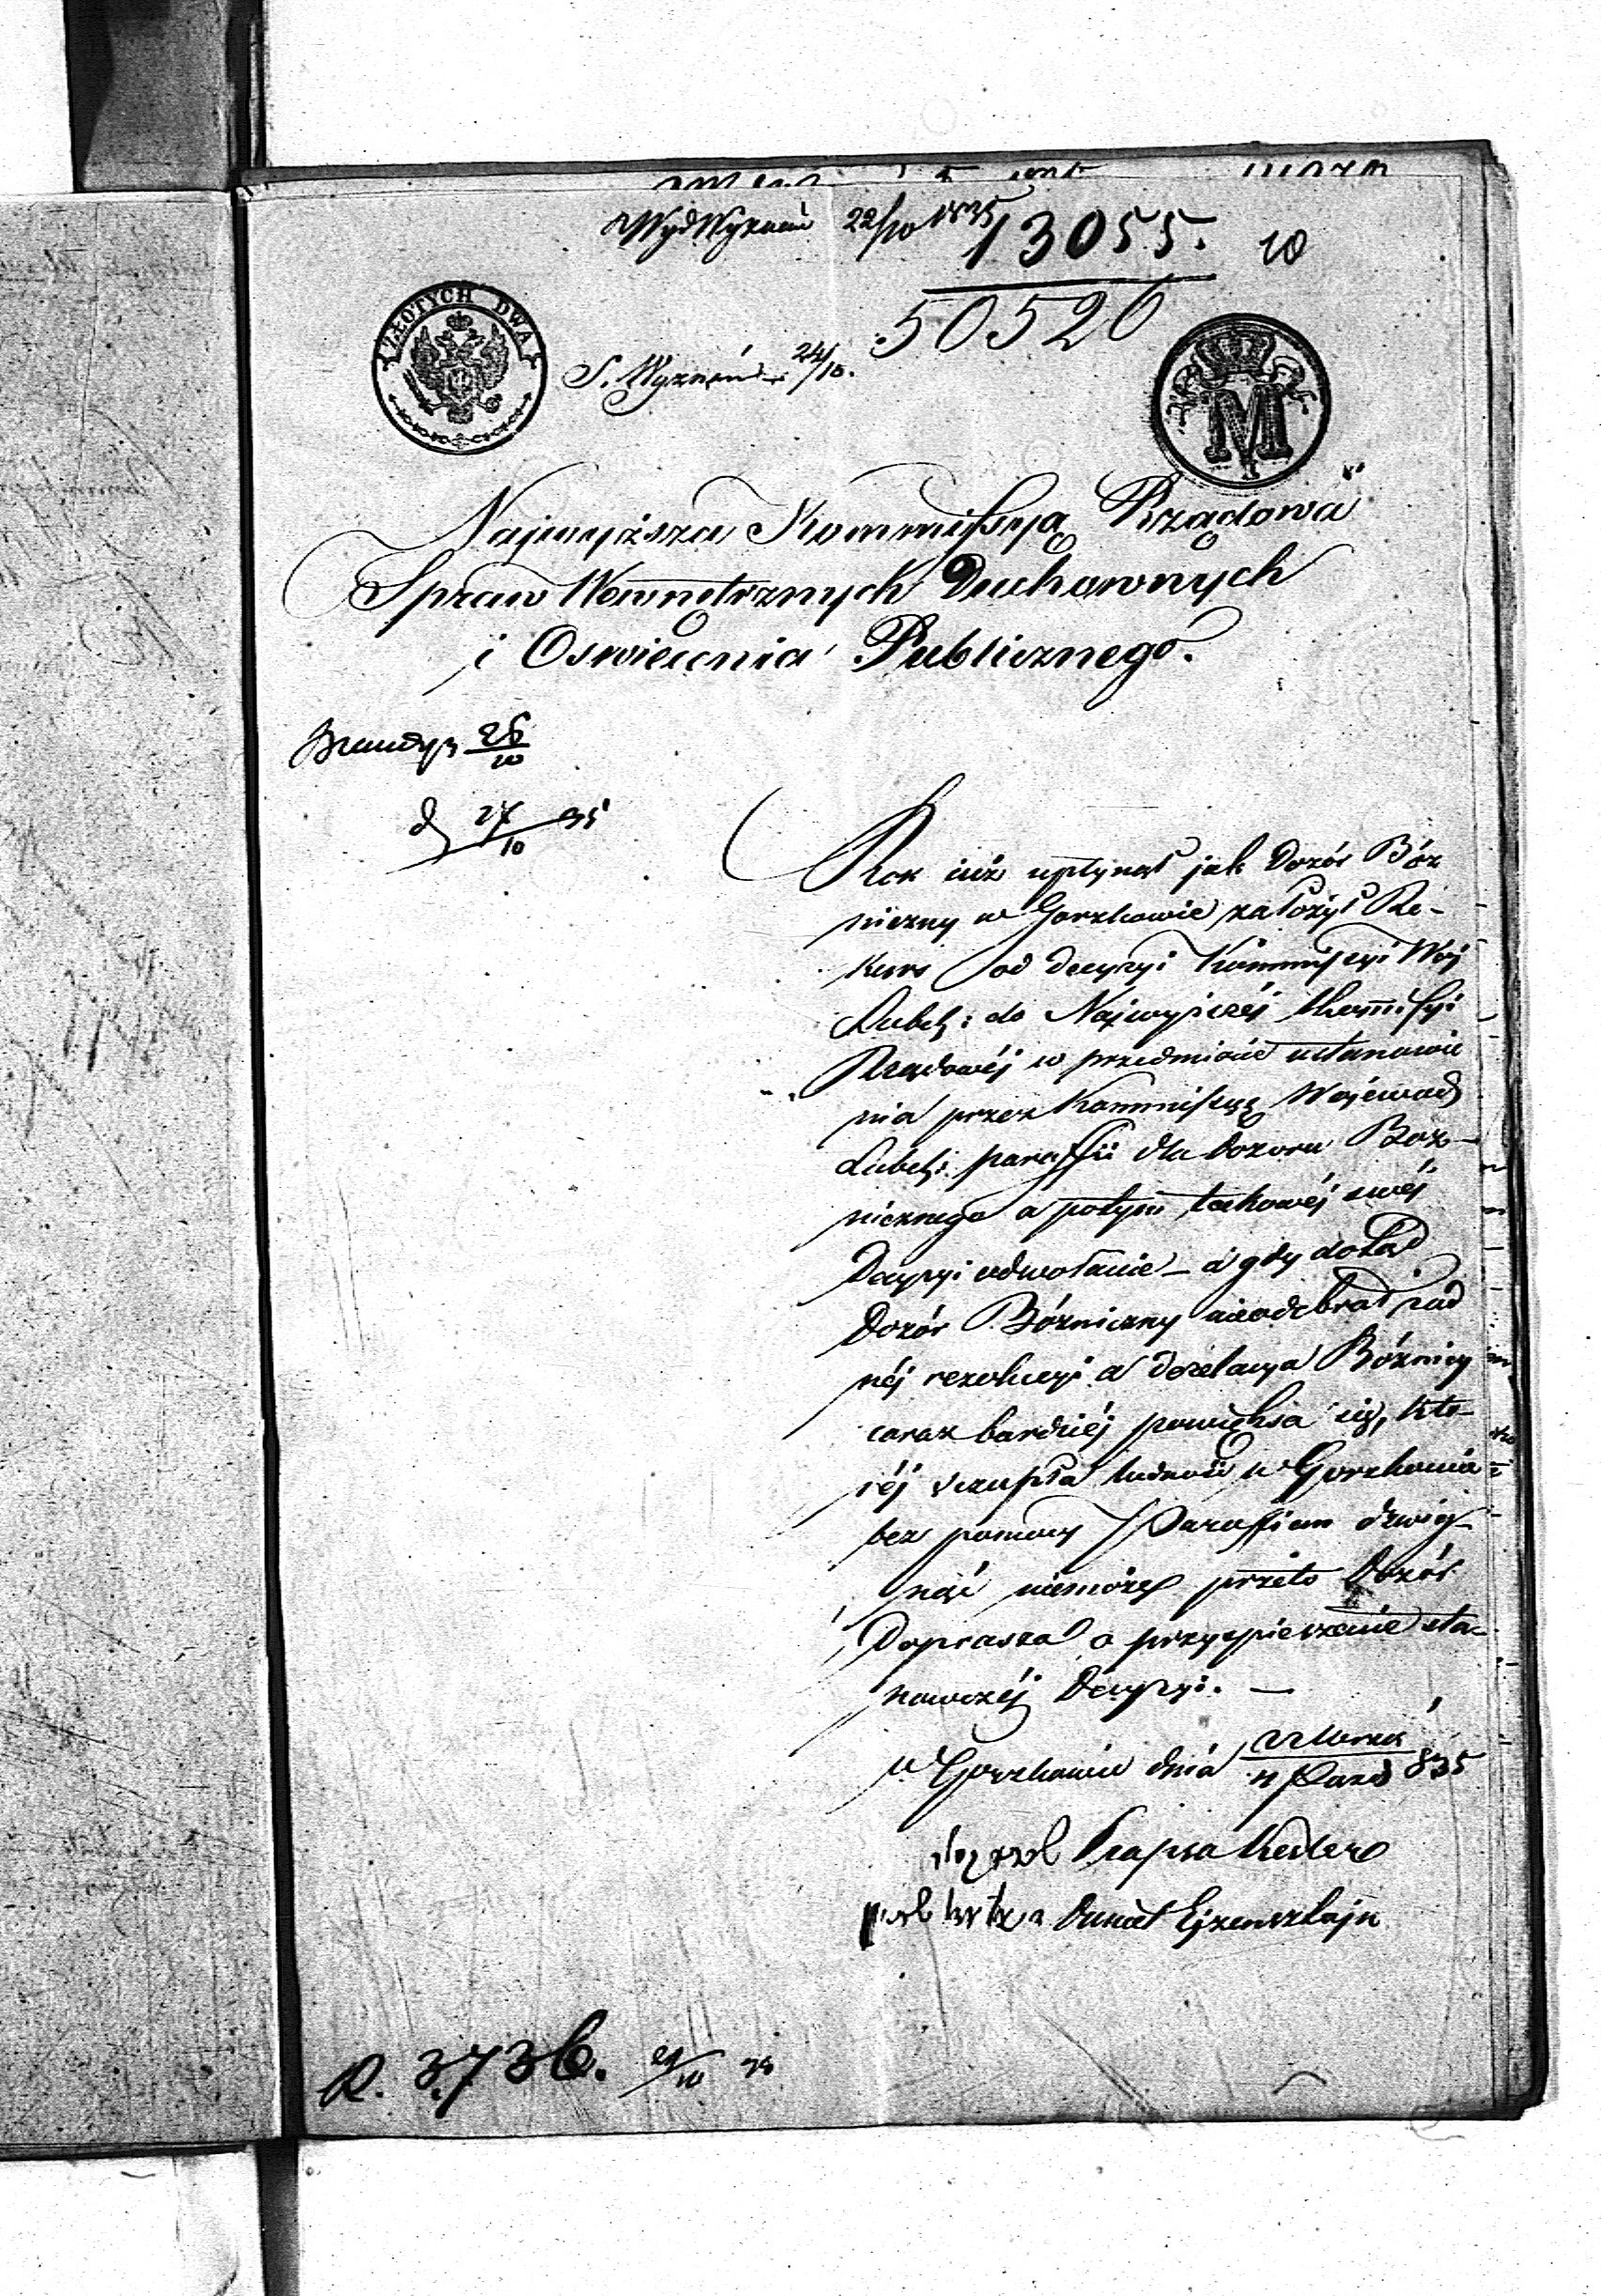 WydWyznań 22/10 1835
13055. 10
50526
ZŁOTYCH DWA
S. Wyznań 24/10.
M
Najwyższa Kommissya Rządowa
Spraw Wewnetrznych Duchownych
i Oswiecenia Publicznego.
26/10
d 27/10 35
Rok iuż upłynął jak Dozór Bóz
niczny w Gorzkowie założył Re-
kurs od decyzyi Kommissyi Woj
Lubel: do Najwyższéj Kommissyi
Rządowéj w przedmiocie ustanowie
nia przez Kommissyą Wojewodz
Lubel: paraffii dla Dozoru Boz-
nicznego a potym takowéj swéj
Decyzyi odwołanie - a gdy dotąd
Dozór Bózniczny nieodebrał żad
néj rezolucyi a dezelacya Bóznicy
coraz bardziéj powiększa się, któ-
réj szczupła ludność w Gorzkowie
bez pomocy Paraffian dzwig-
nąć niemoże przeto Dozór
Doprasza o przyspieszenie sta-
nowczéj Decyzyi. —
w Gorzkowie dnia 22 Wrzes / 4 Pazd 835
Kedler
Ejzensztajn
R. 3736. 21/10 35